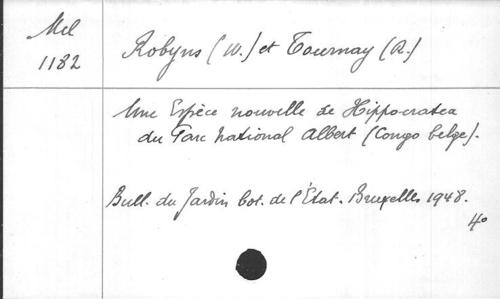 Mel
1182
Robyns (W.) et Tournay (R.)
Une Espèce nouvelle de Hippocratea
du Parc National Albert (Congo belge).
Bull. du Jardin bot. de l'État. Bruxelles 1948.
4o